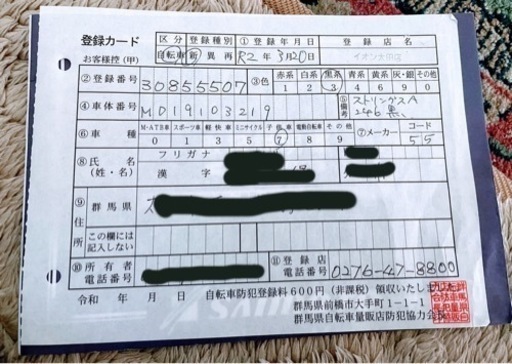 登録カード
お客様控(甲)
区分 登録種別 ①登録年月日 登録店名
自転車 新 異 再 R2年3月20日
②登録番号 30855507 ③色 赤系 白系 黒系 青系 黄系 灰・銀 その他
1 2 3 4 5 6 0
④車体番号 M019103219 ⑤備考 ストリングスA 246 黒
⑥車種 M-ATB車 スポーツ車 軽快車 ミニサイクル 子供車 電動自転車 その他 ⑦メーカー コード
0 1 3 5 7 8 9 55
⑧氏名(姓・名) フリガナ
漢字
⑨住所 群馬県
この欄には記入しない
⑩所有者電話番号 ⑪登録店電話番号 0276-47-8800
令和 年 月 日 自転車防犯登録料600円(非課税)領収いたしました
群馬県前橋市大手町1-1-1
群馬県自転車量販店防犯協力会